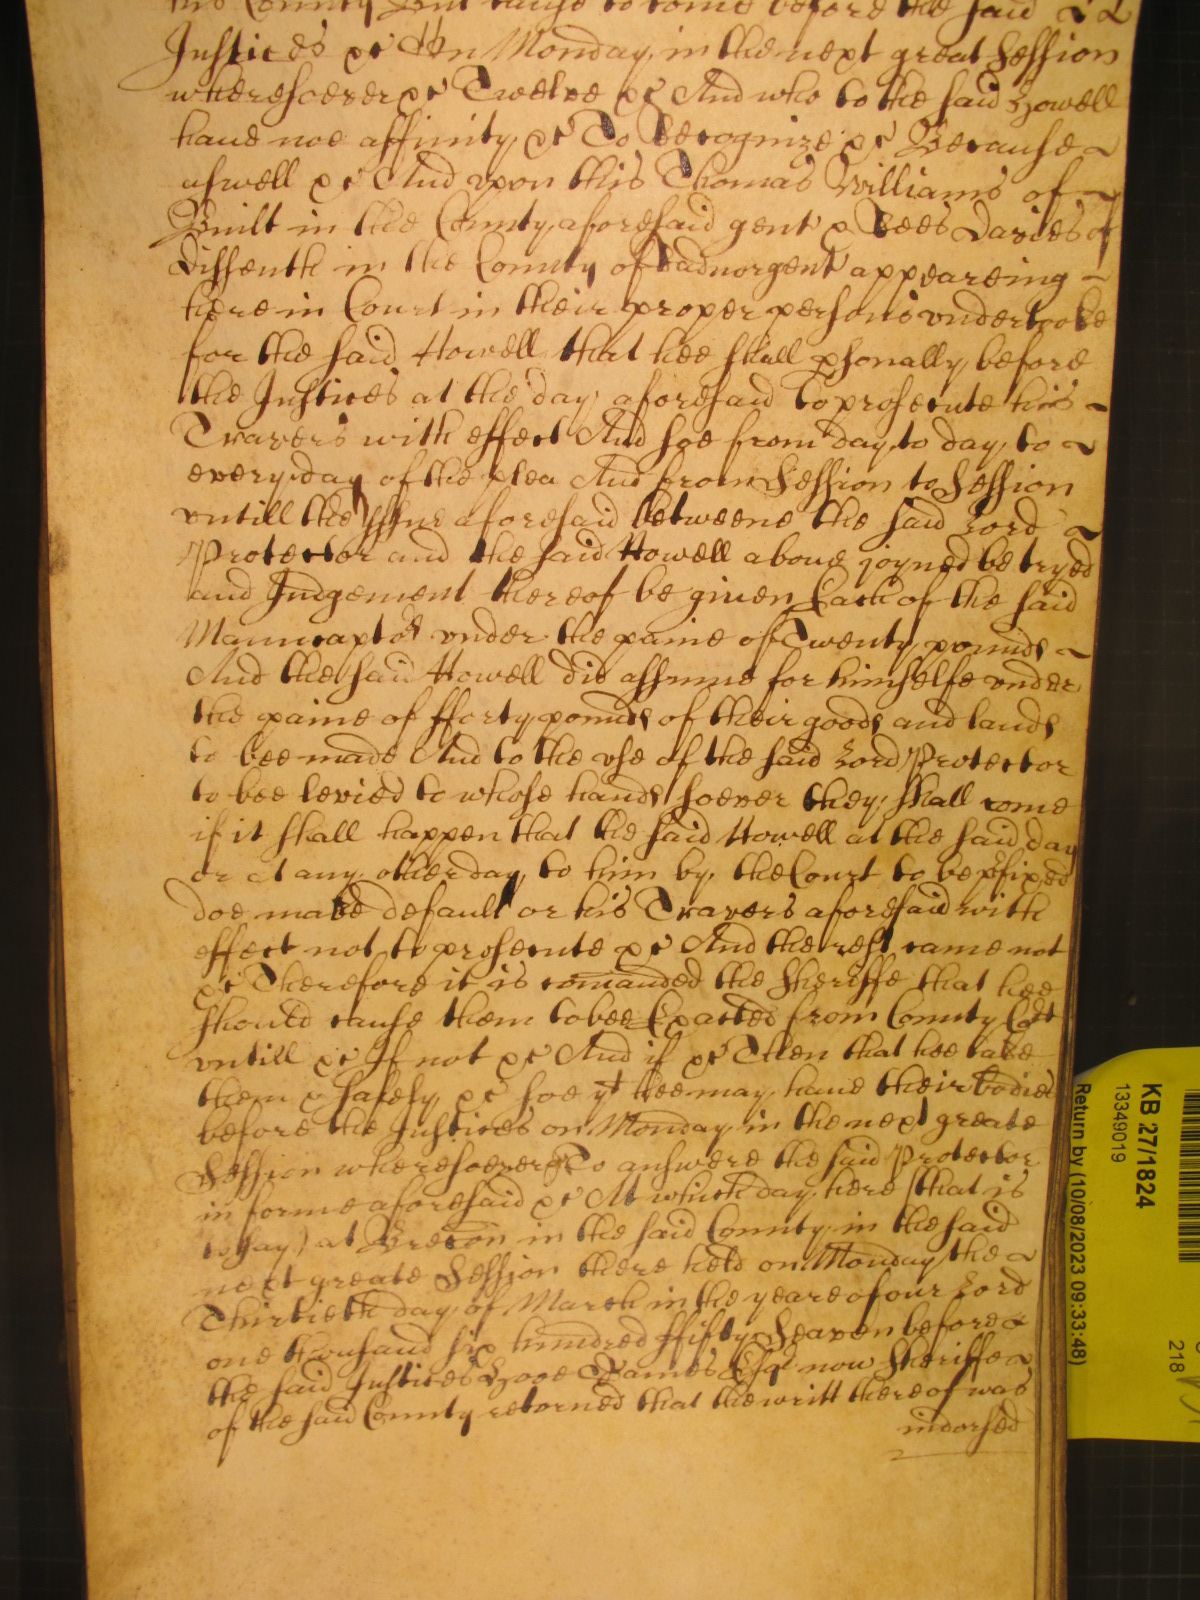 his County But cause to come before the said
Justices &c On Monday in the next great Session
wheresoever &c Twelve &c And who to the said Howell
haue noe affinity &c To Recognize &c Because
aswell &c And vpon this Thomas Williams of
Built in the County aforesaid gent & Rees Davies of
Disserth in the County of Radnor gent appeareing
here in Court in their proper persons vndertooke
for the said Howell that hee shall psonally before
the Justices at the day aforesaid To prosecute his
Travers with effect And soe from day to day to
every day of the plea And from Session to Session
vntill the Issue aforesaid betweene the said Lord
Protector and the said Howell aboue joyned be tryed
and Judgement thereof be giuen Each of the said
Manucaptors vnder the paine of Twenty pounds
And the said Howell did assume for himselfe vnder
the paine of fforty pounds of their goods and lands
to bee made And to the vse of the said Lord Protector
to bee levied to whose hands soever they shall come
if it shall happen that the said Howell at the said day
or at any other day to him by the Court to be pfixed
doe make default or his Travers aforesaid with
effect not to prosecute &c And the rest came not
&c Therefore it is comanded the Sheriffe that hee
should cause them to bee Exacted from County Cort
vntill &c If not &c And if &c Then that hee take
them & safely &c soe yt hee may haue their bodies
before the Justices on Monday in the next greate
Session wheresoever &c To answere the said Protector
in forme aforesaid &c At which day here (that is
to say) at Brecon in the said County in the said
next greate Session there held on Monday the
Thirtieth day of March in the yeare of our Lord
one thousand six hundred ffifty Seaven before
the said Justices Hoo Games Esqr now Sheriffe
of the said County retorned that the writt thereof was
indorsed
KB 27/1824
13349019
Return by (10/08/2023 09:33:48)
218